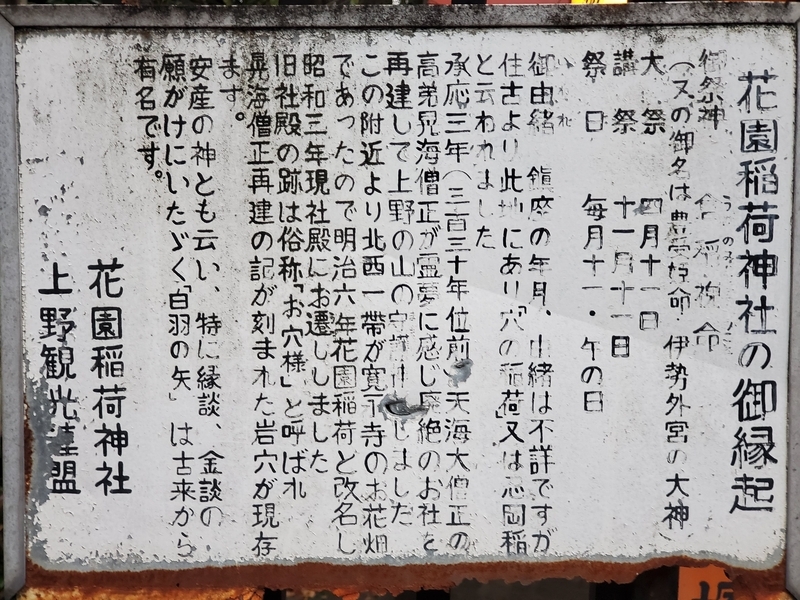 花園稲荷神社の御縁起
御祭神 倉稲魂命
(又の御名は豊受姫命 伊勢外宮の大神)
大祭 四月十一日
講祭 十一月十一日
祭日 毎月十一・午の日
御由緒 鎮座の年月、由緒は不詳ですが
住古より此地にあり「穴の稲荷」又は忍岡稲
と云われました
承応三年(三百三十年位前)天海大僧正の
高弟晃海僧正が霊夢に感じ廃絶のお社を
再建して上野の山の守護神としました
この附近より北西一帯が寛永寺のお花畑
であったので明治六年花園稲荷と改名し
昭和三年現社殿にお遷ししました
旧社殿の跡は俗称「お穴様」と呼ばれ
晃海僧正再建の記が刻まれた岩穴が現存
ます。
安産の神とも云い、特に縁談、金談の
願がけにいたゞく「白羽の矢」は古来から
有名です。
花園稲荷神社
上野観光連盟